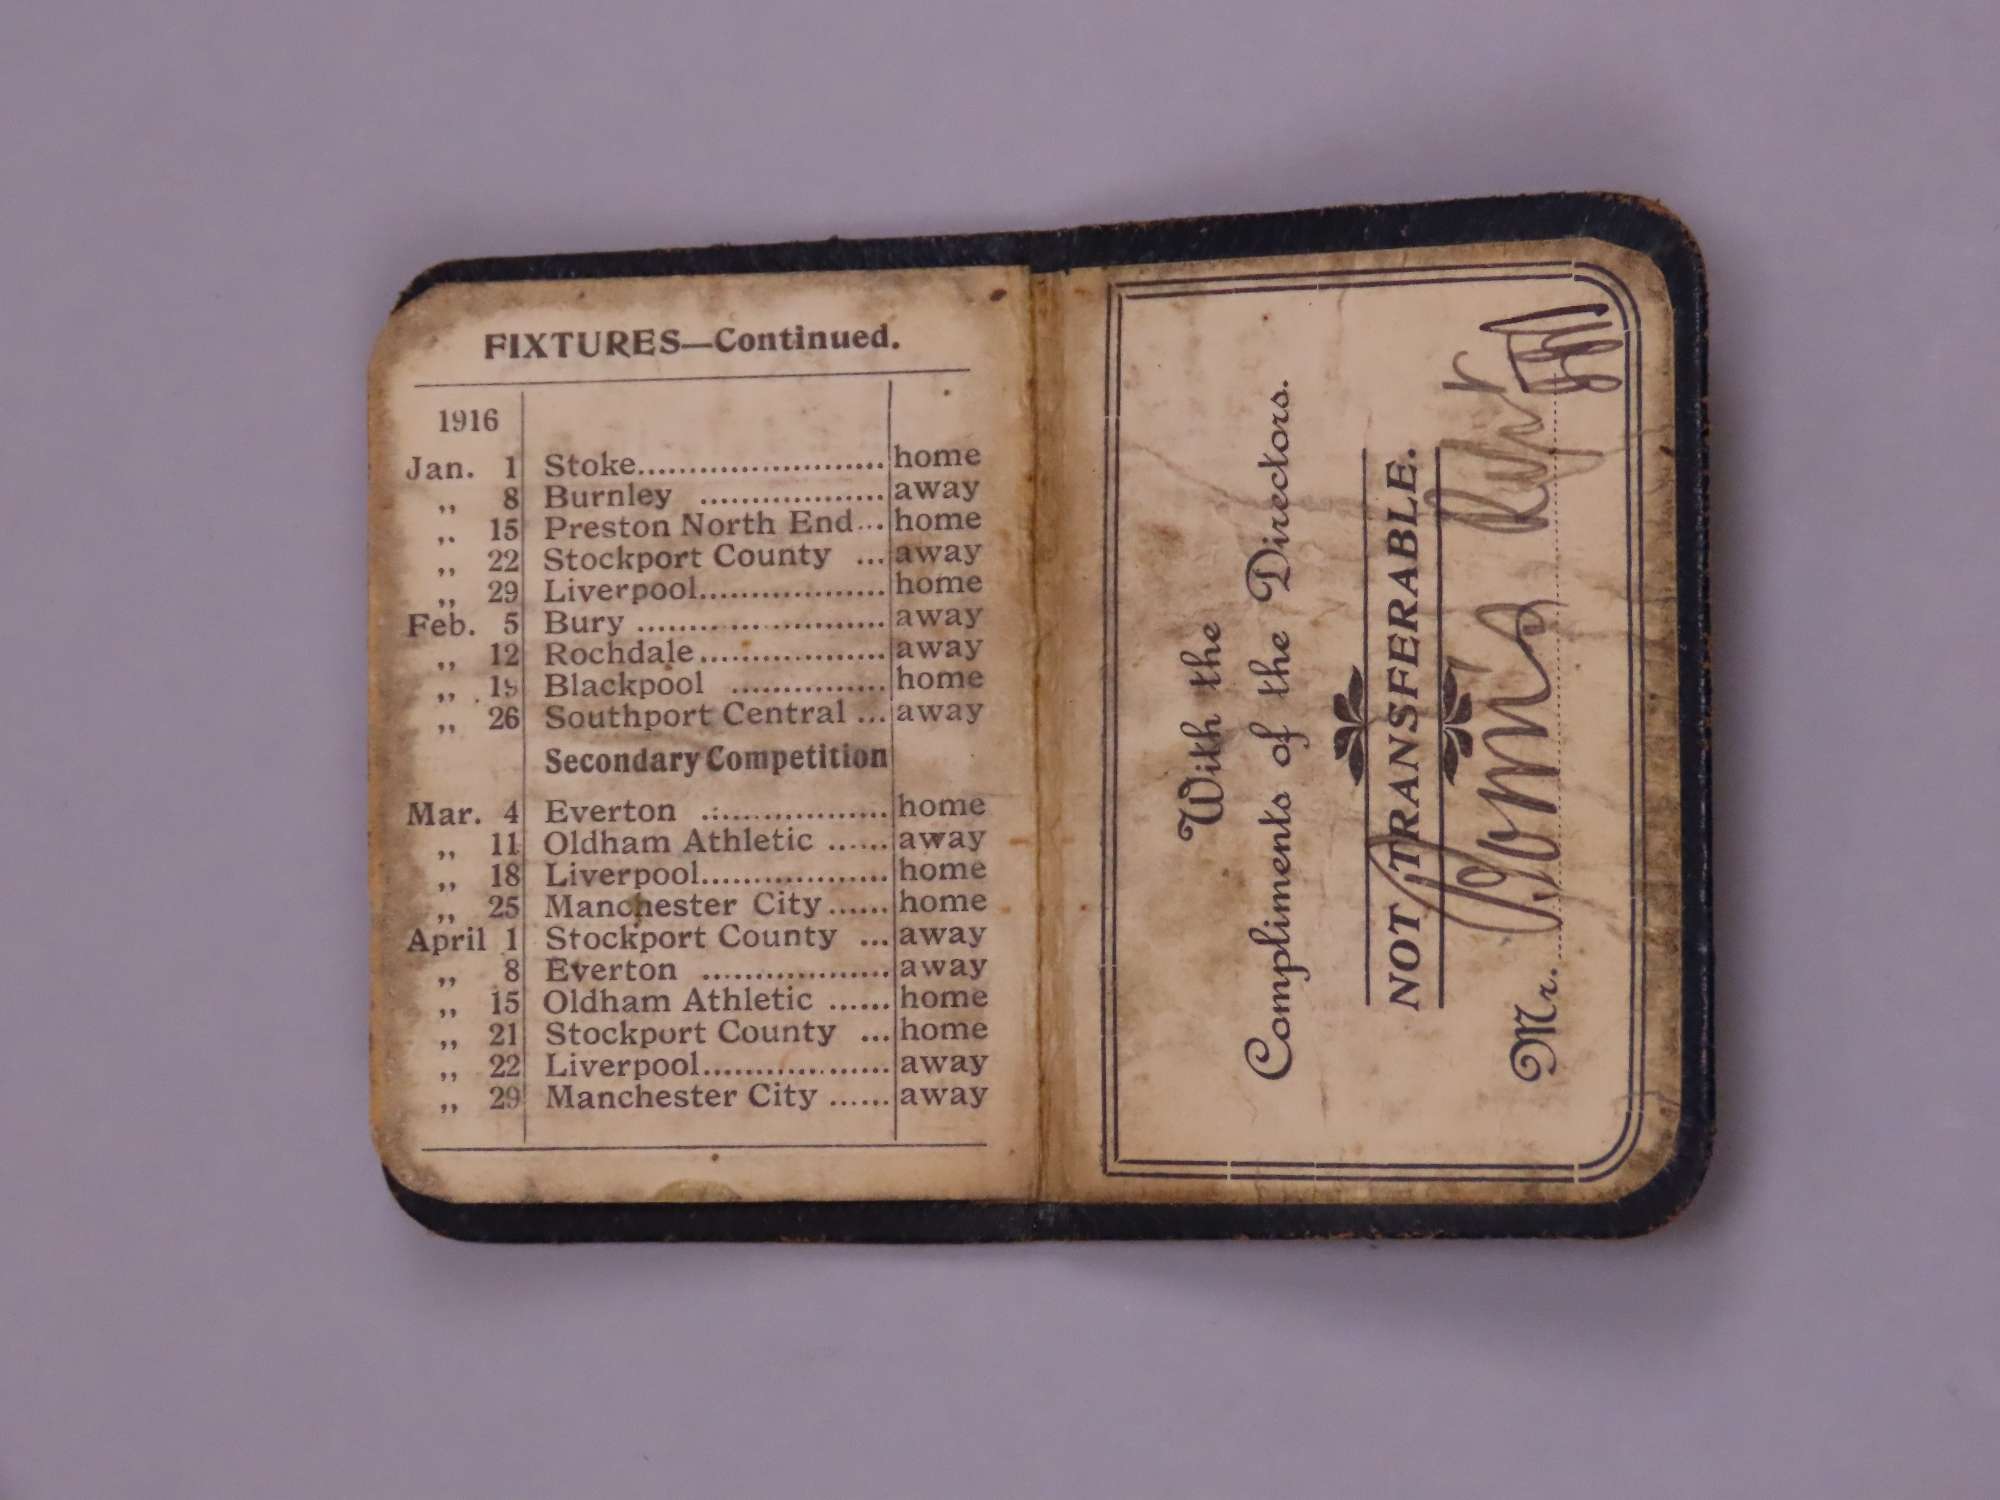 FIXTURES—Continued.
1916
Jan. 1 Stoke........................ home
,, 8 Burnley .................. away
,, 15 Preston North End... home
,, 22 Stockport County ... away
,, 29 Liverpool.................. home
Feb. 5 Bury ........................ away
,, 12 Rochdale.................. away
,, 19 Blackpool ............... home
,, 26 Southport Central ... away
Secondary Competition
Mar. 4 Everton .................. home
,, 11 Oldham Athletic ...... away
,, 18 Liverpool.................. home
,, 25 Manchester City...... home
April 1 Stockport County ... away
,, 8 Everton .................. away
,, 15 Oldham Athletic ...... home
,, 21 Stockport County ... home
,, 22 Liverpool.................. away
,, 29 Manchester City ...... away
With the
Compliments of the Directors.
NOT TRANSFERABLE.
Mr.